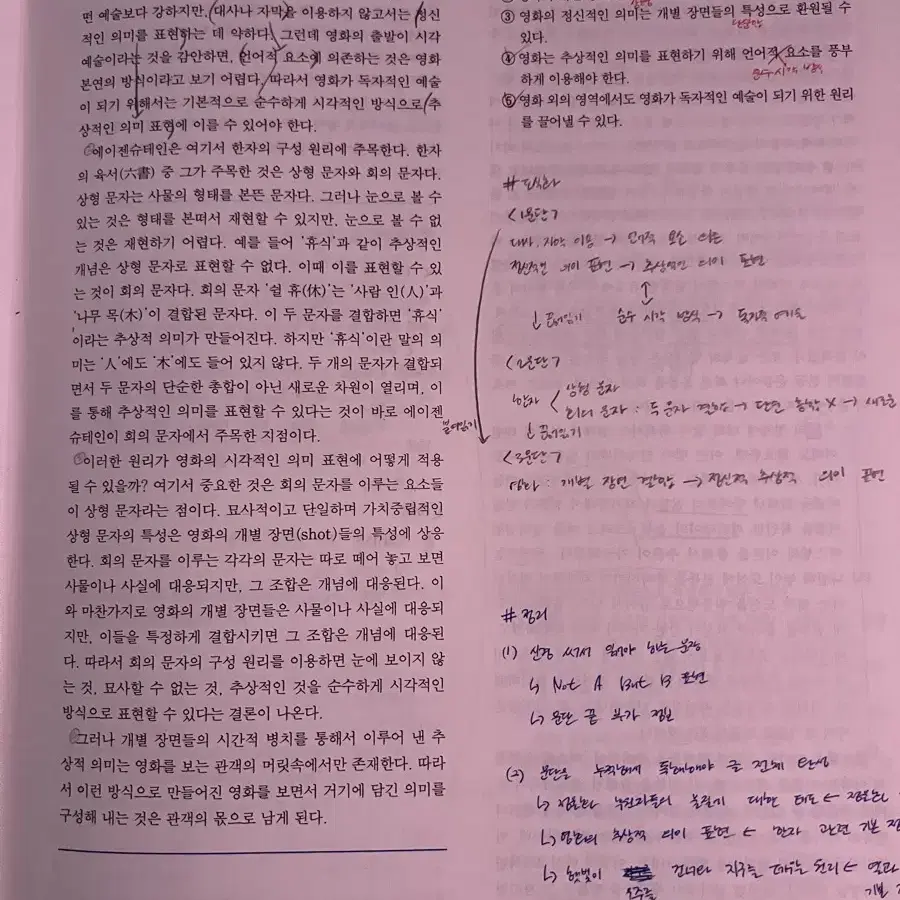 떤 예술보다 강하지만, 대사나 자막을 이용하지 않고서는 정신
적인 의미를 표현하는 데 약하다. 그런데 영화의 출발이 시각
예술이라는 것을 감안하면, 언어적 요소에 의존하는 것은 영화
본연의 방식이라고 보기 어렵다. 따라서 영화가 독자적인 예술
이 되기 위해서는 기본적으로 순수하게 시각적인 방식으로 추
상적인 의미 표현에 이를 수 있어야 한다.
에이젠슈테인은 여기서 한자의 구성 원리에 주목한다. 한자
의 육서(六書) 중 그가 주목한 것은 상형 문자와 회의 문자다.
상형 문자는 사물의 형태를 본뜬 문자다. 그러나 눈으로 볼 수
있는 것은 형태를 본떠서 재현할 수 있지만, 눈으로 볼 수 없
는 것은 재현하기 어렵다. 예를 들어 '휴식'과 같이 추상적인
개념은 상형 문자로 표현할 수 없다. 이때 이를 표현할 수 있
는 것이 회의 문자다. 회의 문자 '쉴 휴(休)'는 '사람 인(人)'과
'나무 목(木)'이 결합된 문자다. 이 두 문자를 결합하면 '휴식'
이라는 추상적 의미가 만들어진다. 하지만 '휴식'이란 말의 의
미는 '人'에도 '木'에도 들어 있지 않다. 두 개의 문자가 결합되
면서 두 문자의 단순한 총합이 아닌 새로운 차원이 열리며, 이
를 통해 추상적인 의미를 표현할 수 있다는 것이 바로 에이젠
슈테인이 회의 문자에서 주목한 지점이다.
이러한 원리가 영화의 시각적인 의미 표현에 어떻게 적용
될 수 있을까? 여기서 중요한 것은 회의 문자를 이루는 요소들
이 상형 문자라는 점이다. 묘사적이고 단일하며 가치중립적인
상형 문자의 특성은 영화의 개별 장면(shot)들의 특성에 상응
한다. 회의 문자를 이루는 각각의 문자는 따로 떼어 놓고 보면
사물이나 사실에 대응되지만, 그 조합은 개념에 대응된다. 이
와 마찬가지로 영화의 개별 장면들은 사물이나 사실에 대응되
지만, 이들을 특정하게 결합시키면 그 조합은 개념에 대응된
다. 따라서 회의 문자의 구성 원리를 이용하면 눈에 보이지 않
는 것, 묘사할 수 없는 것, 추상적인 것을 순수하게 시각적인
방식으로 표현할 수 있다는 결론이 나온다.
그러나 개별 장면들의 시간적 병치를 통해서 이루어 낸 추
상적 의미는 영화를 보는 관객의 머릿속에서만 존재한다. 따라
서 이런 방식으로 만들어진 영화를 보면서 거기에 담긴 의미를
구성해 내는 것은 관객의 몫으로 남게 된다.
③ 영화의 정신적인 의미는 개별 장면들의 특성으로 환원될 수
있다.
④ 영화는 추상적인 의미를 표현하기 위해 언어적 요소를 풍부
하게 이용해야 한다.
순수 시각 방식
⑤ 영화 외의 영역에서도 영화가 독자적인 예술이 되기 위한 원리
를 끌어낼 수 있다.
# 도식화
<1문단>
대사, 자막 이용 → 언어적 요소 의존
정신적인 의미 표현 → 추상적인 의미 표현
↳ 끊어읽기 순수 시각 방식 → 독자적 예술
<2문단>
한자 < 상형 문자
회의 문자 : 두 문자 결합 → 단순 총합 X → 새로운
↳ 끊어읽기
붙여읽기
<3문단>
영화 : 개별 장면 결합 → 정신적 추상적 의미 표현
# 정리
(1) 신경 써서 읽어야 하는 문장
↳ Not A But B 표현
↳ 문단 끝 부가 정보
(2) 문단을 누적하며 독해해야 글 전체
↳ 대한 태도 ←
↳ 영화의 추상적 의미 표현 ← 한자 관련 기본
↳ 햇빛이 지구를 원리 ←
기본